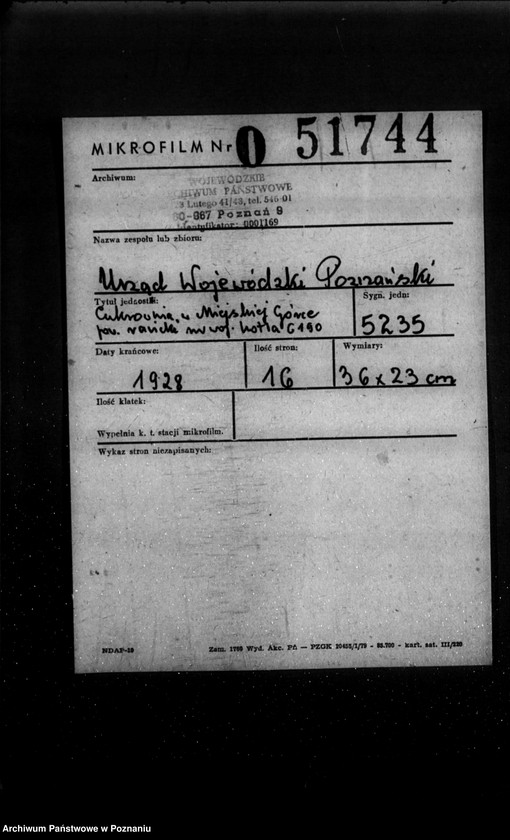 MIKROFILM Nr O 51744
Archiwum:
WOJEWÓDZKIE
ARCHIWUM PAŃSTWOWE
Lutego 41/43, tel. 546-01
60-967 Poznań 9
Identyfikator: 0001169
Nazwa zespołu lub zbioru:
Urząd Wojewódzki Poznański
Tytuł jednostki:
Sygn. jedn:
Cukrownia w Miejskiej Górce
pow. rawicki nr woj. kotła C190
5235
Daty krańcowe:
Ilość stron:
Wymiary:
1928
16
36 x 23 cm
Ilość klatek:
Wypełnia k. t. stacji mikrofilm.
Wykaz stron niezapisanych:
NDAP-19
Zam. 1799 Wyd. Akc. Pń — PZGK - kart. sat. III/220
Archiwum Państwowe w Poznaniu